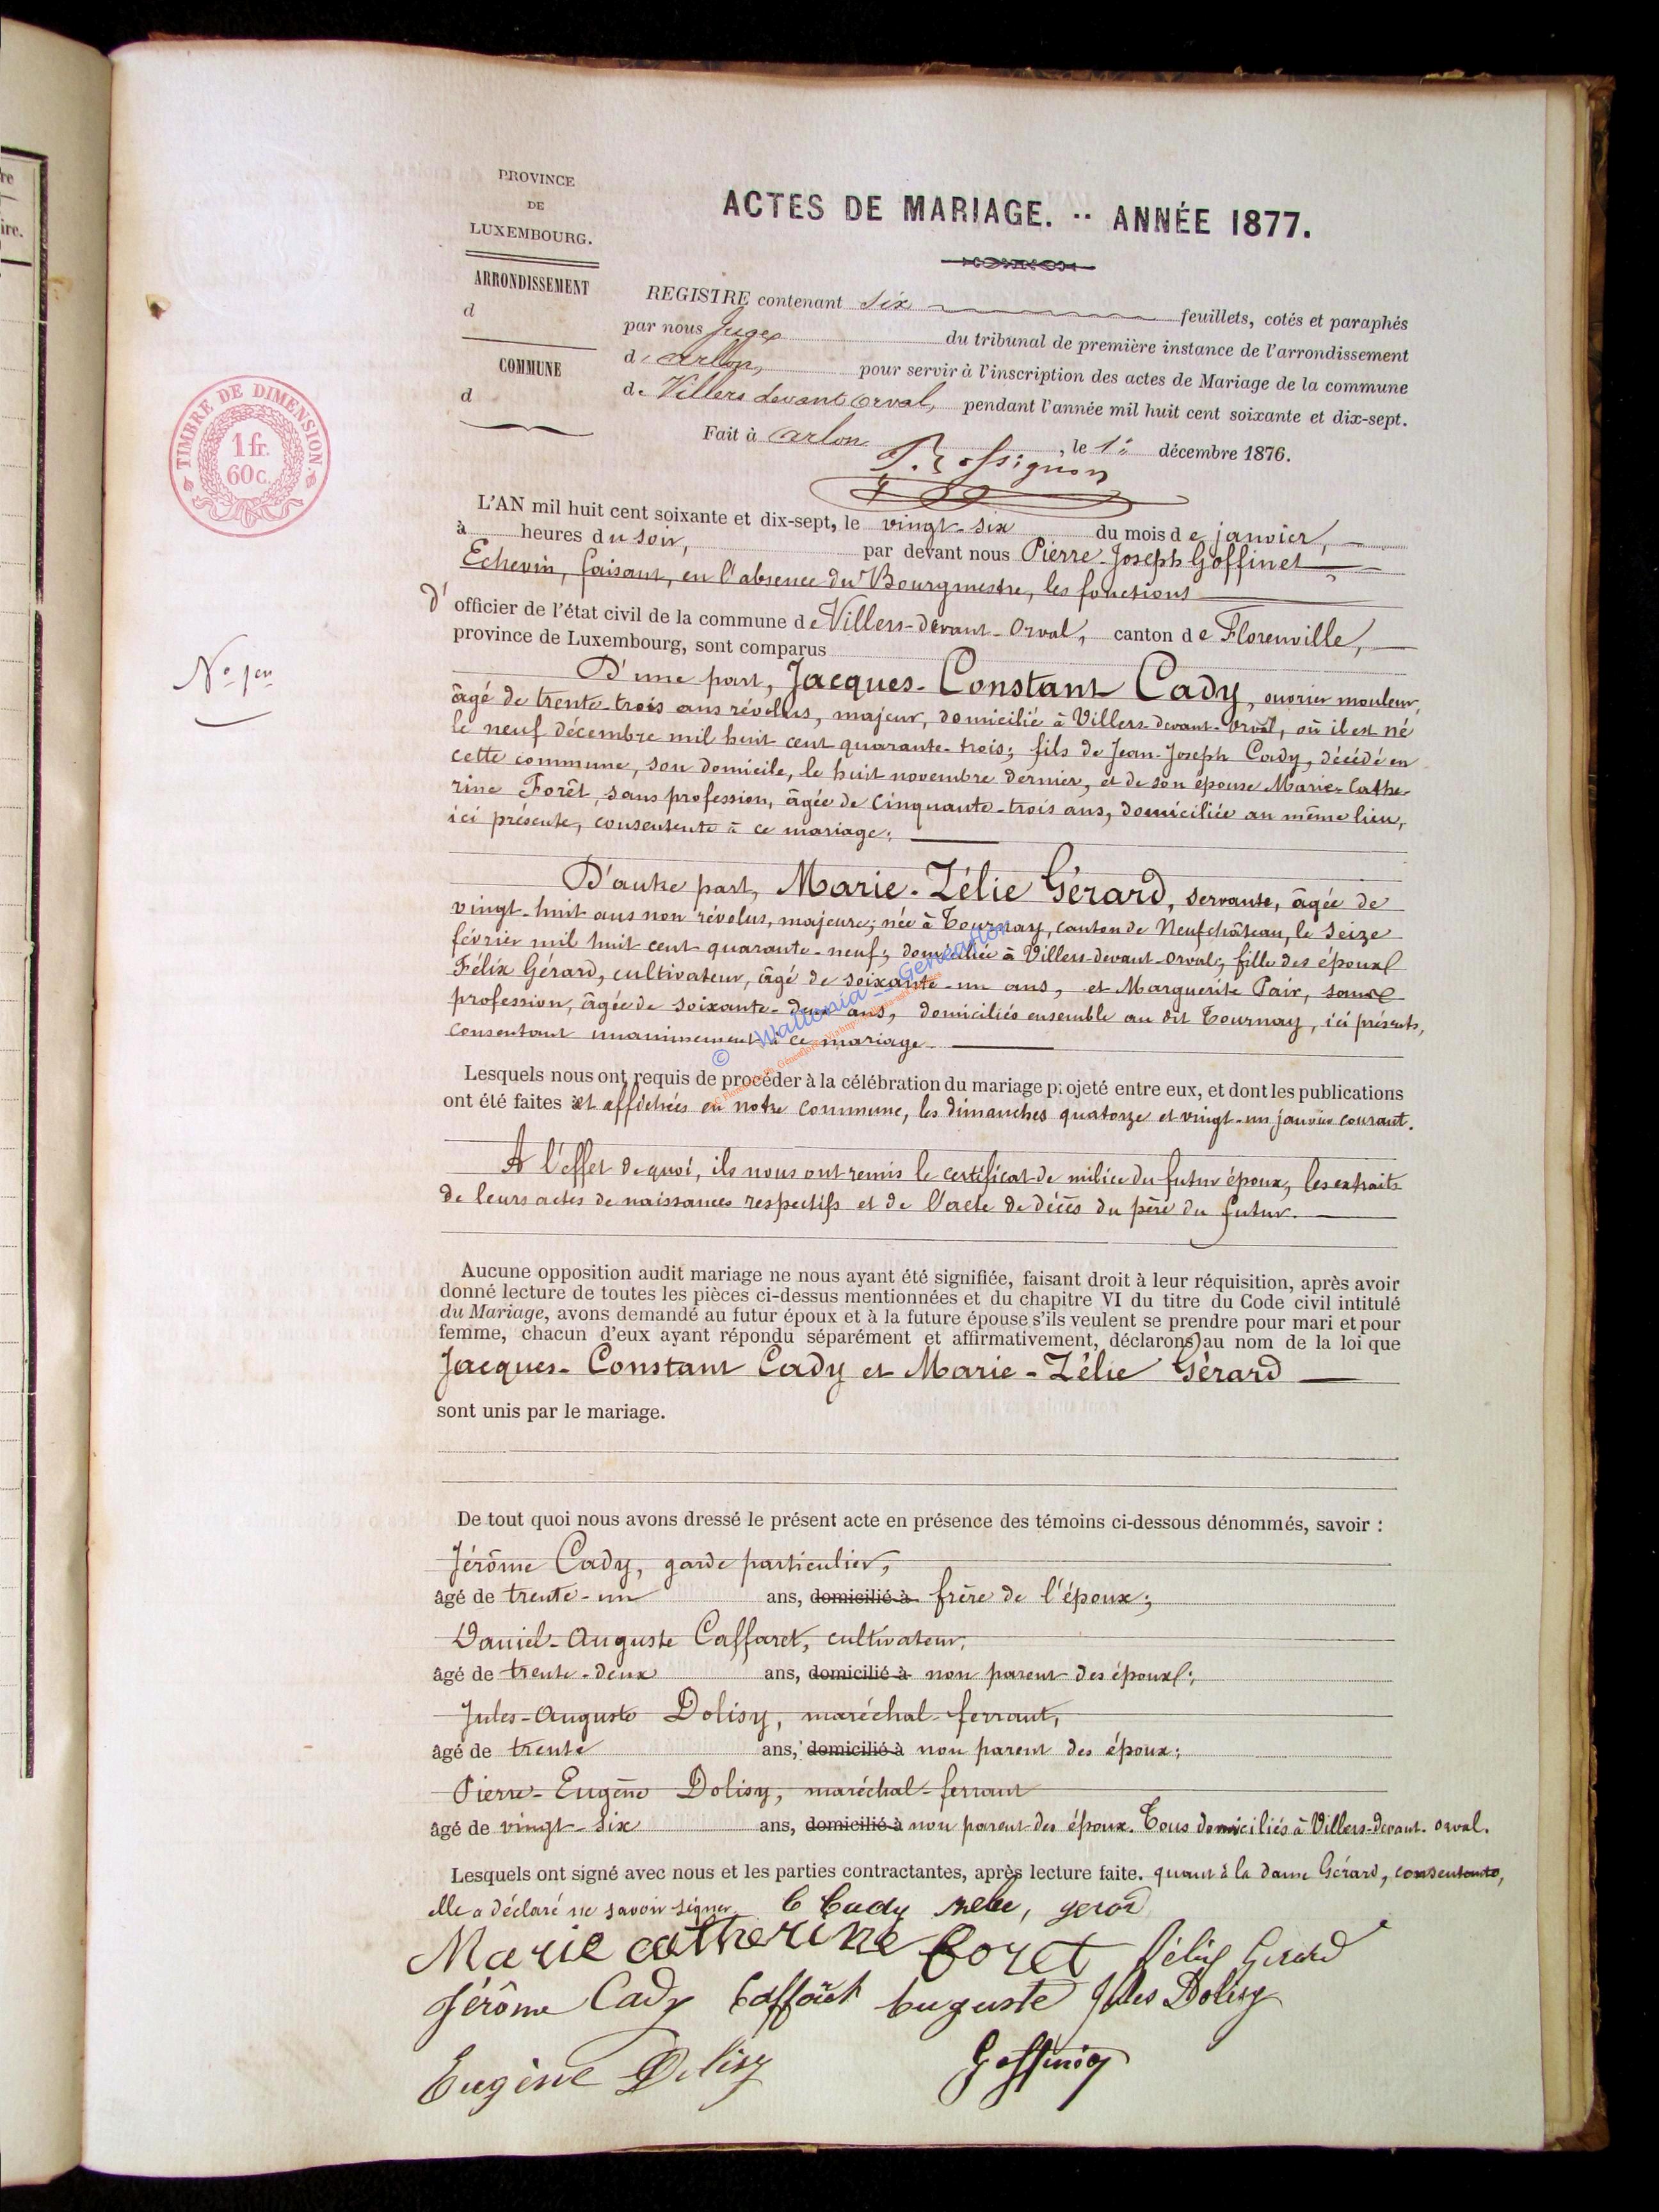 re
ire.
PROVINCE
DE
LUXEMBOURG.
ARRONDISSEMENT
d
COMMUNE
d
TIMBRE DE DIMENSION
1 fr.
60 c.
ACTES DE MARIAGE. -- ANNÉE 1877.
REGISTRE contenant six feuillets, cotés et paraphés
par nous Juge du tribunal de première instance de l'arrondissement
d'arlon, pour servir à l'inscription des actes de Mariage de la commune
de Villers devant orval, pendant l'année mil huit cent soixante et dix-sept.
Fait à arlon, le 1er décembre 1876.
Rossignon
N° 1er
L'AN mil huit cent soixante et dix-sept, le vingt-six du mois de janvier,
à heures du soir, par devant nous Pierre-Joseph Goffinet
Echevin, faisant, en l'absence du Bourgmestre, les fonctions
d'officier de l'état civil de la commune de Villers-devant-Orval, canton de Florenville,
province de Luxembourg, sont comparus
D'une part, Jacques-Constant Cady, ouvrier mouleur,
âgé de trente-trois ans révolus, majeur, domicilié à Villers-devant-Orval, où il est né
le neuf décembre mil huit cent quarante-trois; fils de Jean-Joseph Cady, décédé en
cette commune, son domicile, le huit novembre dernier, et de son épouse Marie-Cathe-
rine Forêt, sans profession, âgée de cinquante-trois ans, domiciliée au même lieu,
ici présente, consentente à ce mariage;
D'autre part, Marie-Zélie Gérard, servante, âgée de
vingt-huit ans non révolus, majeure; née à Tournay, canton de Neufchâteau, le seize
février mil huit cent quarante-neuf; domiciliée à Villers-devant-Orval; fille des époux
Félix Gérard, cultivateur, âgé de soixante-un ans, et Marguerite Pair, sans
profession, âgée de soixante-deux ans, domiciliés ensemble au dit Tournay, ici présents,
consentant unanimement à ce mariage
© Wallonia - Généation
Lesquels nous ont requis de procéder à la célébration du mariage projeté entre eux, et dont les publications
ont été faites et affichées en notre commune, les dimanches quatorze et vingt-un janvier courant.
A l'effet de quoi, ils nous ont remis le certificat de milice du futur époux, les extraits
de leurs actes de naissances respectifs et de l'acte de décès du père du futur.
Aucune opposition audit mariage ne nous ayant été signifiée, faisant droit à leur réquisition, après avoir
donné lecture de toutes les pièces ci-dessus mentionnées et du chapitre VI du titre du Code civil intitulé
du Mariage, avons demandé au futur époux et à la future épouse s'ils veulent se prendre pour mari et pour
femme, chacun d'eux ayant répondu séparément et affirmativement, déclarons au nom de la loi que
Jacques-Constant Cady et Marie-Zélie Gérard
sont unis par le mariage.
De tout quoi nous avons dressé le présent acte en présence des témoins ci-dessous dénommés, savoir :
Jérôme Cady, garde particulier,
âgé de trente-un ans, domicilié à frère de l'époux;
Daniel-Auguste Caffaret, cultivateur,
âgé de trente-deux ans, domicilié à non parent des époux;
Jules-Auguste Dolisy, maréchal-ferrant,
âgé de trente ans, domicilié à non parent des époux;
Pierre-Eugène Dolisy, maréchal-ferrant
âgé de vingt-six ans, domicilié à non parent des époux. Tous domiciliés à Villers-devant-Orval.
Lesquels ont signé avec nous et les parties contractantes, après lecture faite. quant à la dame Gérard, consentante,
elle a déclaré ne savoir signer. C Cady zelie, gerard
Marie catherine Foret félix Gerard
Jérôme Cady Caffaret auguste Jules Dolisy
Eugène Dolisy Goffinet